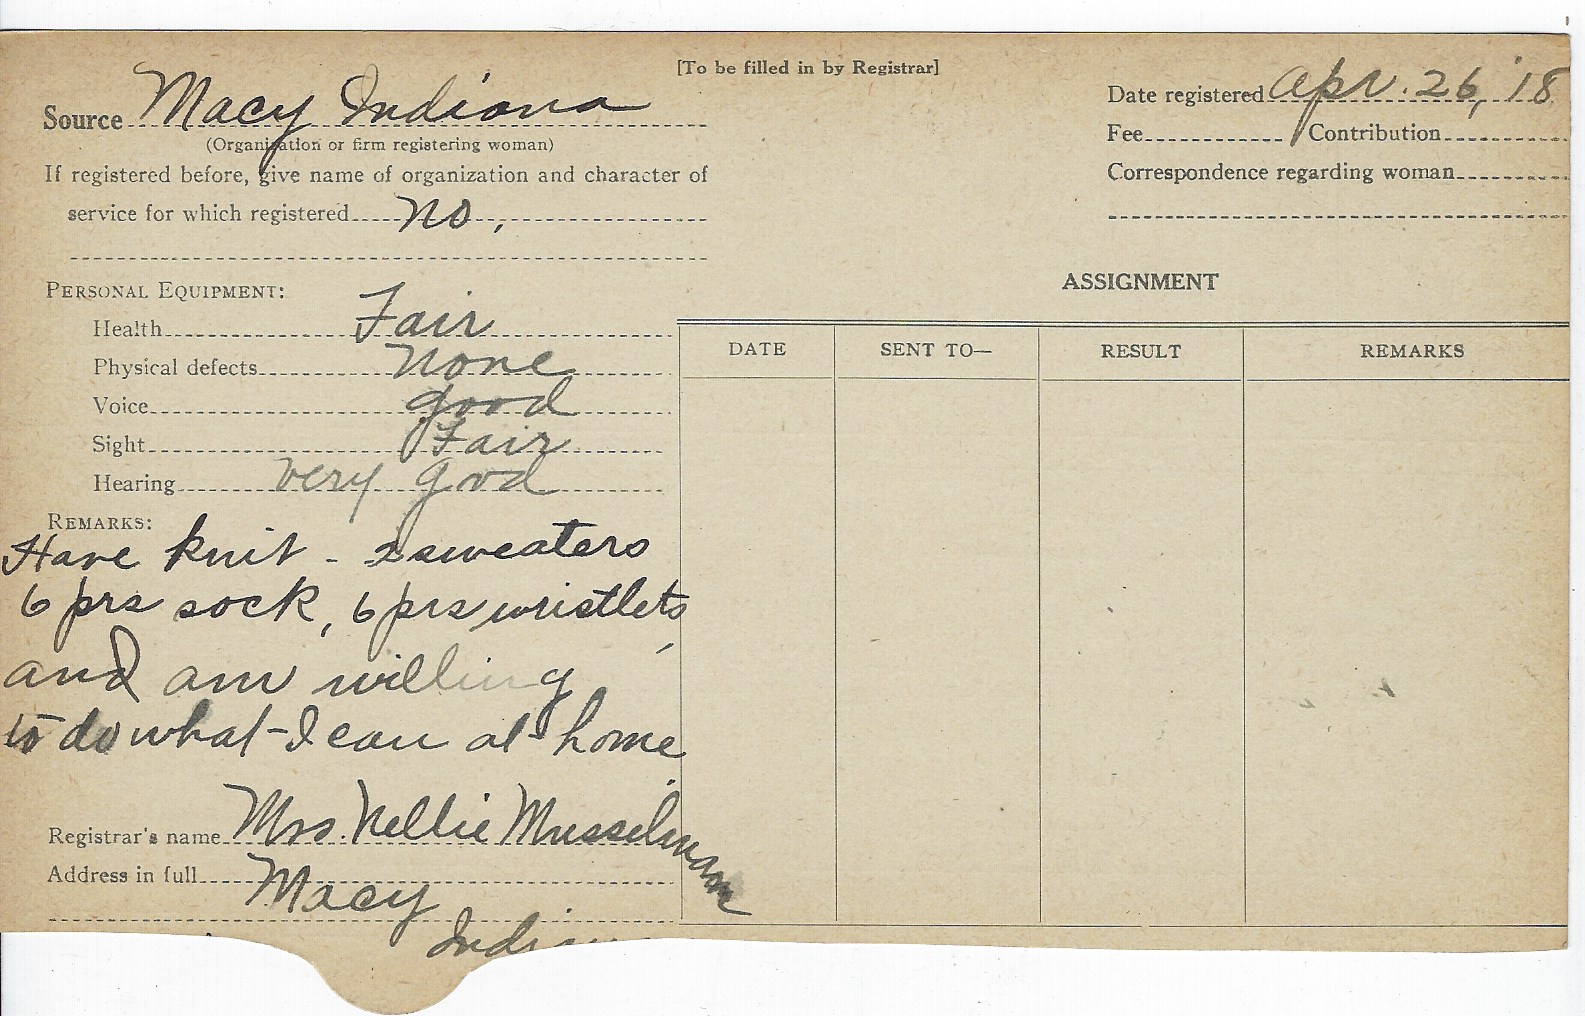 [To be filled in by Registrar]
Source Macy Indiana
(Organization or firm registering woman)
If registered before, give name of organization and character of
service for which registered no.
Date registered Apr. 26, '18
Fee Contribution
Correspondence regarding woman
PERSONAL EQUIPMENT:
Health Fair
Physical defects None
Voice good
Sight Fair
Hearing very good
REMARKS:
Have knit - 2 sweaters
6 prs sock, 6 prs wristlets
and am willing
to do what I can at home
Registrar's name Mrs. Nellie Musselman
Address in full Macy
Indiana
ASSIGNMENT
DATE SENT TO— RESULT REMARKS